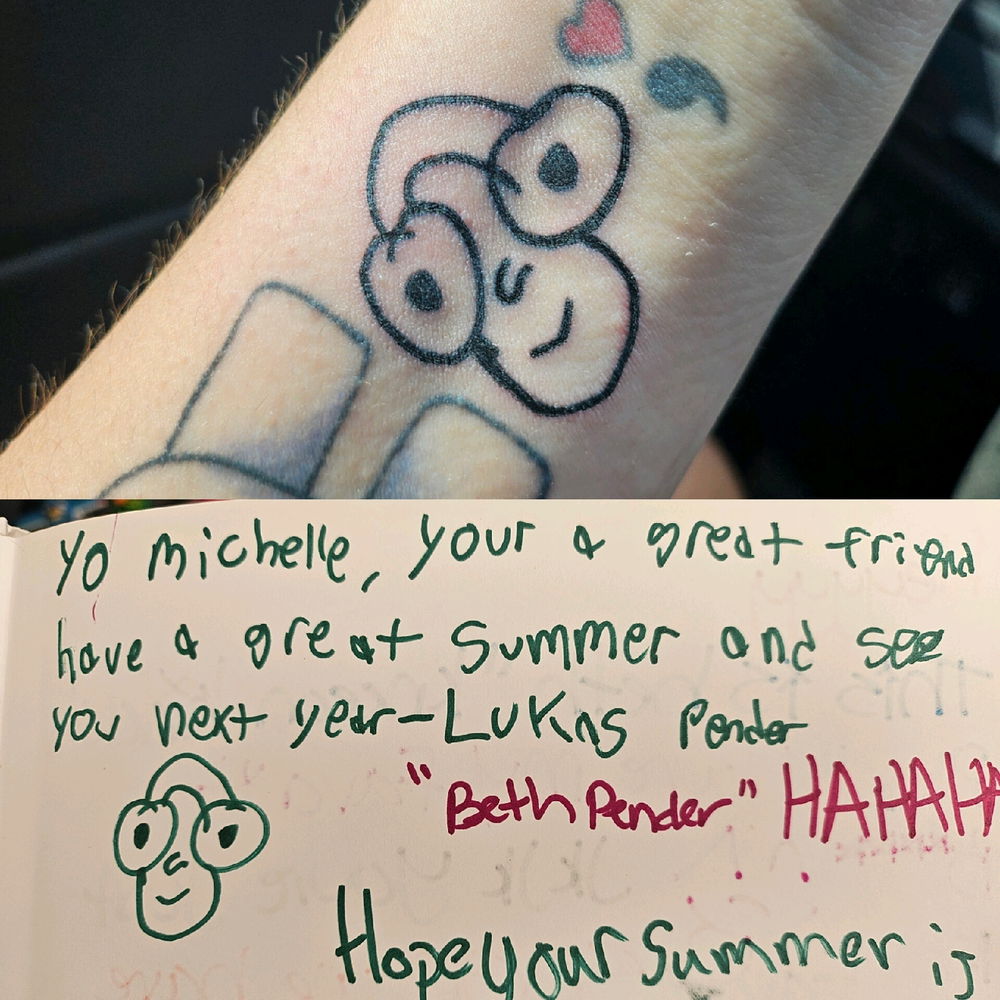 Yo michelle, your a great friend
have a great summer and see
you next year-Lukas Pender
"Beth Pender" HAHAHA
Hope your summer is